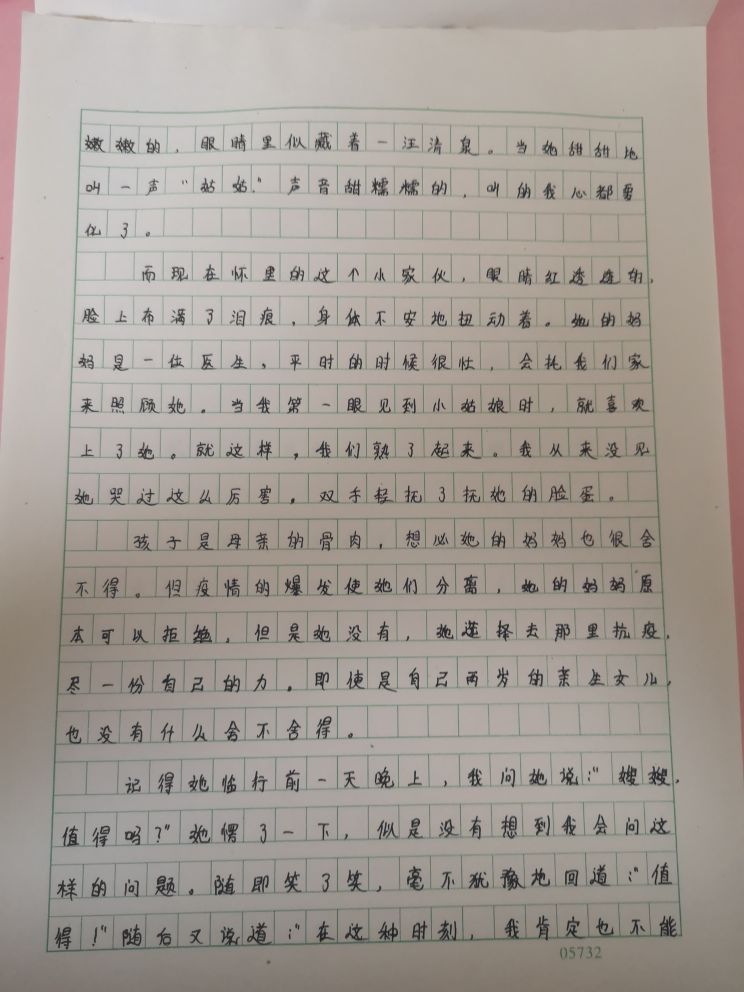 嫩嫩的，眼睛里似藏着一汪清泉。当她甜甜地
叫一声“姑姑”声音甜糯糯的，叫的我心都要
化了。
而现在怀里的这个小家伙，眼睛红透透的，
脸上布满了泪痕，身体不安地扭动着。她的妈
妈是一位医生，平时的时候很忙，会托我们家
来照顾她。当我第一眼见到小姑娘时，就喜欢
上了她。就这样，我们熟了起来。我从来没见
她哭过这么厉害，双手轻抚了抚她的脸蛋。
孩子是母亲的骨肉，想必她的妈妈也很舍
不得。但疫情的爆发使她们分离，她的妈妈原
本可以拒绝，但是她没有，她选择去那里抗疫，
尽一份自己的力。即使是自己两岁的亲生女儿，
也没有什么舍不舍得。
记得她临行前一天晚上，我问她说：“嫂嫂，
值得吗？”她愣了一下，似是没有想到我会问这
样的问题。随即笑了笑，毫不犹豫地回道：“值
得！”随后又说道：“在这种时刻，我肯定也不能
05732